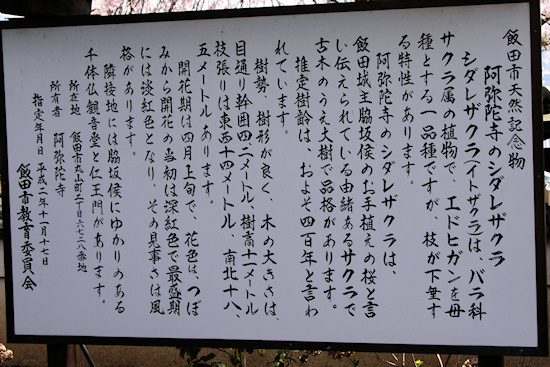 飯田市天然記念物
阿弥陀寺のシダレザクラ
シダレザクラ(イトザクラ)は、バラ科
サクラ属の植物で、エドヒガンを母
種とする一品種ですが、枝が下垂す
る特性があります。
阿弥陀寺のシダレザクラは、
飯田城主脇坂侯のお手植えの桜と言
い伝えられている由緒あるサクラで
古木のうえ大樹で品格があります。
推定樹齢は、およそ四百年と言わ
れています。
樹勢、樹形が良く、木の大きさは、
目通り幹囲四・六メートル、樹高十一メートル
枝張りは東西十四メートル、南北十八、
五メートルあります。
開花期は四月上旬で、花色は、つぼ
みから開花の当初は深紅色で最盛期
には淡紅色となり、その見事さは風
格があります。
隣接地には脇坂侯にゆかりのある
千体仏観音堂と仁王門があります。
所在地 飯田市丸山町二丁目六七二八番地
所有者 阿弥陀寺
指定年月日 平成二年十一月十七日
飯田市教育委員会